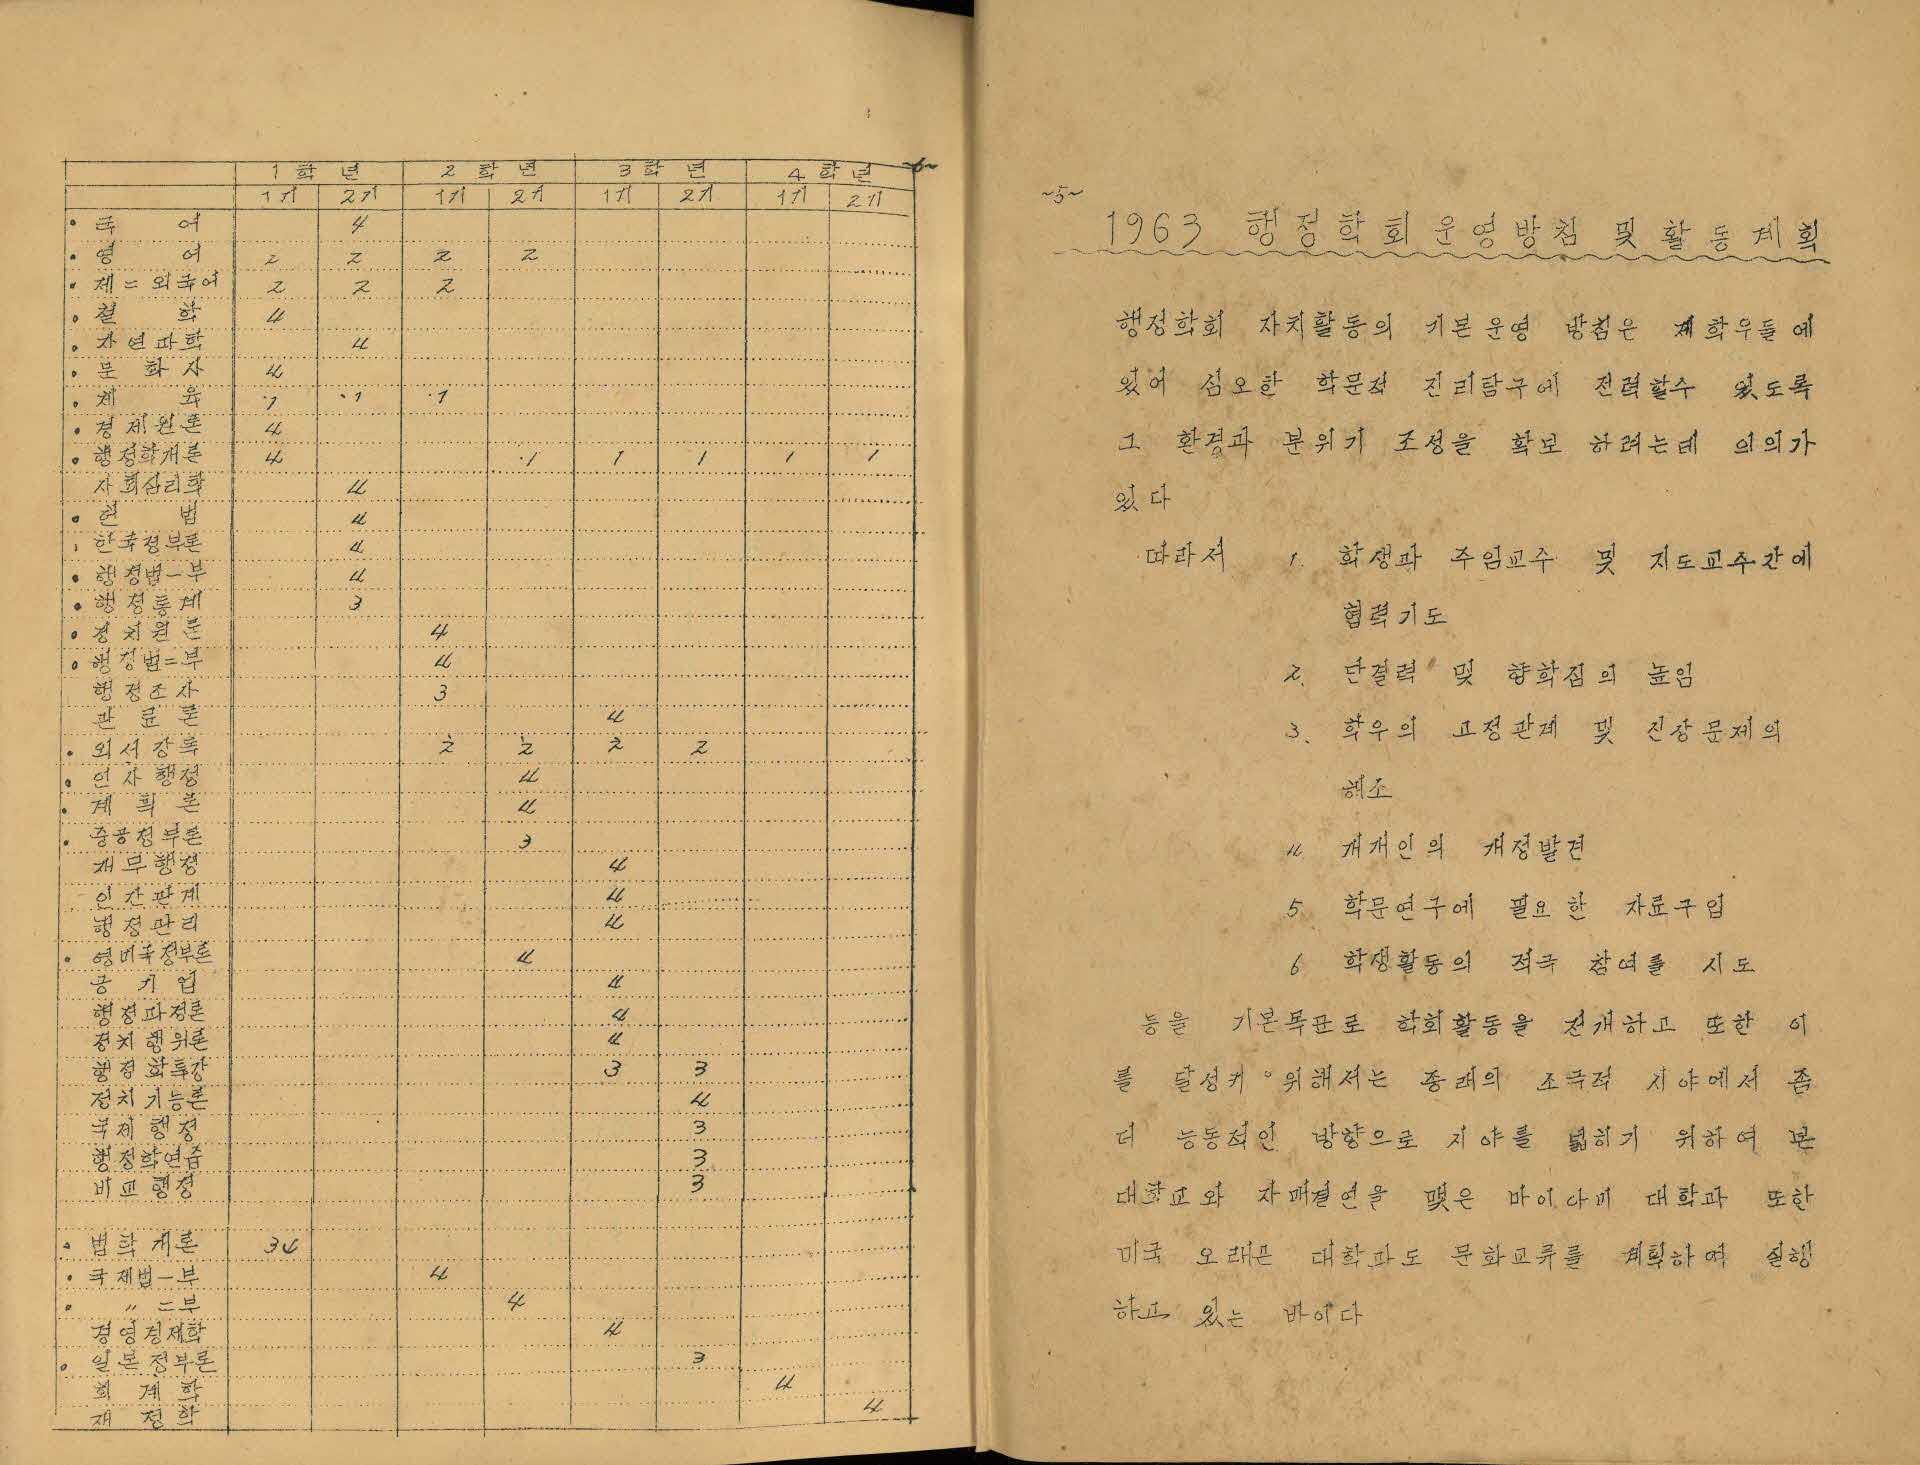 ~6~
1학년 2학년 3학년 4학년
1기 2기 1기 2기 1기 2기 1기 2기
• 국어 4
• 영어 2 2 2 2
• 제二외국어 2 2 2
• 철학 4
• 자연과학 4
• 문화사 4
• 체육 1 1 1
• 경제원론 4
• 행정학개론 4 1 1 1 1 1
사회심리학 4
• 헌법 4
한국정부론 4
• 행정법一부 4
• 행정통계 3
• 정치원론 4
• 행정법二부 4
행정조사 3
관료론 4
• 외서강독 2 2 2 2
• 인사행정 4
• 계획론 4
• 중공정부론 3
재무행정 4
인간관계 4
행정관리 4
• 영미국정부론 4
공기업 4
행정과정론 4
정치행위론 4
행정학특강 3 3
정치기능론 4
국제행정 3
행정학연습 3
비교행정 3
• 법학개론 34
• 국제법一부 4
• 〃 二부 4
경영경제학 4
• 일본정부론 3
회계학 4
재정학 4
~5~
1963 행정학회운영방침 및 활동계획
행정학회 자치활동의 기본운영 방침은 제학우들에
있어 심오한 학문적 진리탐구에 전력할수 있도록
그 환경과 분위기 조성을 확보 하려는데 의의가
있다
따라서 1. 학생과 주임교수 및 지도교수간에
협력기도
2. 단결력 및 향학심의 높임
3. 학우의 교정관계 및 신상문제의
해소
4 개개인의 개정발견
5 학문연구에 필요한 자료구입
6 학생활동의 적극 참여를 시도
등을 기본목표로 학회활동을 전개하고 또한 이
를 달성키 위해서는 종래의 소극적 시야에서 좀
더 능동적인 방향으로 시야를 넓히기 위하여 본
대학교와 자매결연을 맺은 마이아미 대학과 또한
미국 오래곤 대학과도 문화교류를 계획하여 실행
하고 있는 바이다